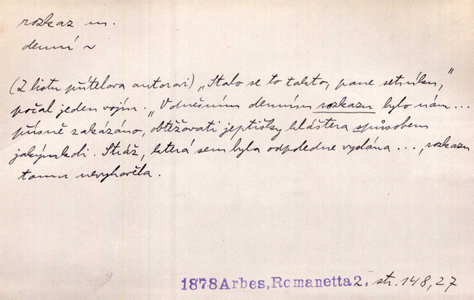 rozkaz m.
denní ~
(Z listu přítelova autorovi) „Stalo se to takto, pane setníku,“
počal jeden vojín. „V dnešním denním rozkazu bylo nám ...
přísně zakázáno, obtěžovati jeptišky kláštera způsobem
jakýmkoli. Stráž, která sem byla odpoledne vyslána ..., rozkazu
tomu nevyhověla.
1878 Arbes, Romanetta 2, str. 148,27